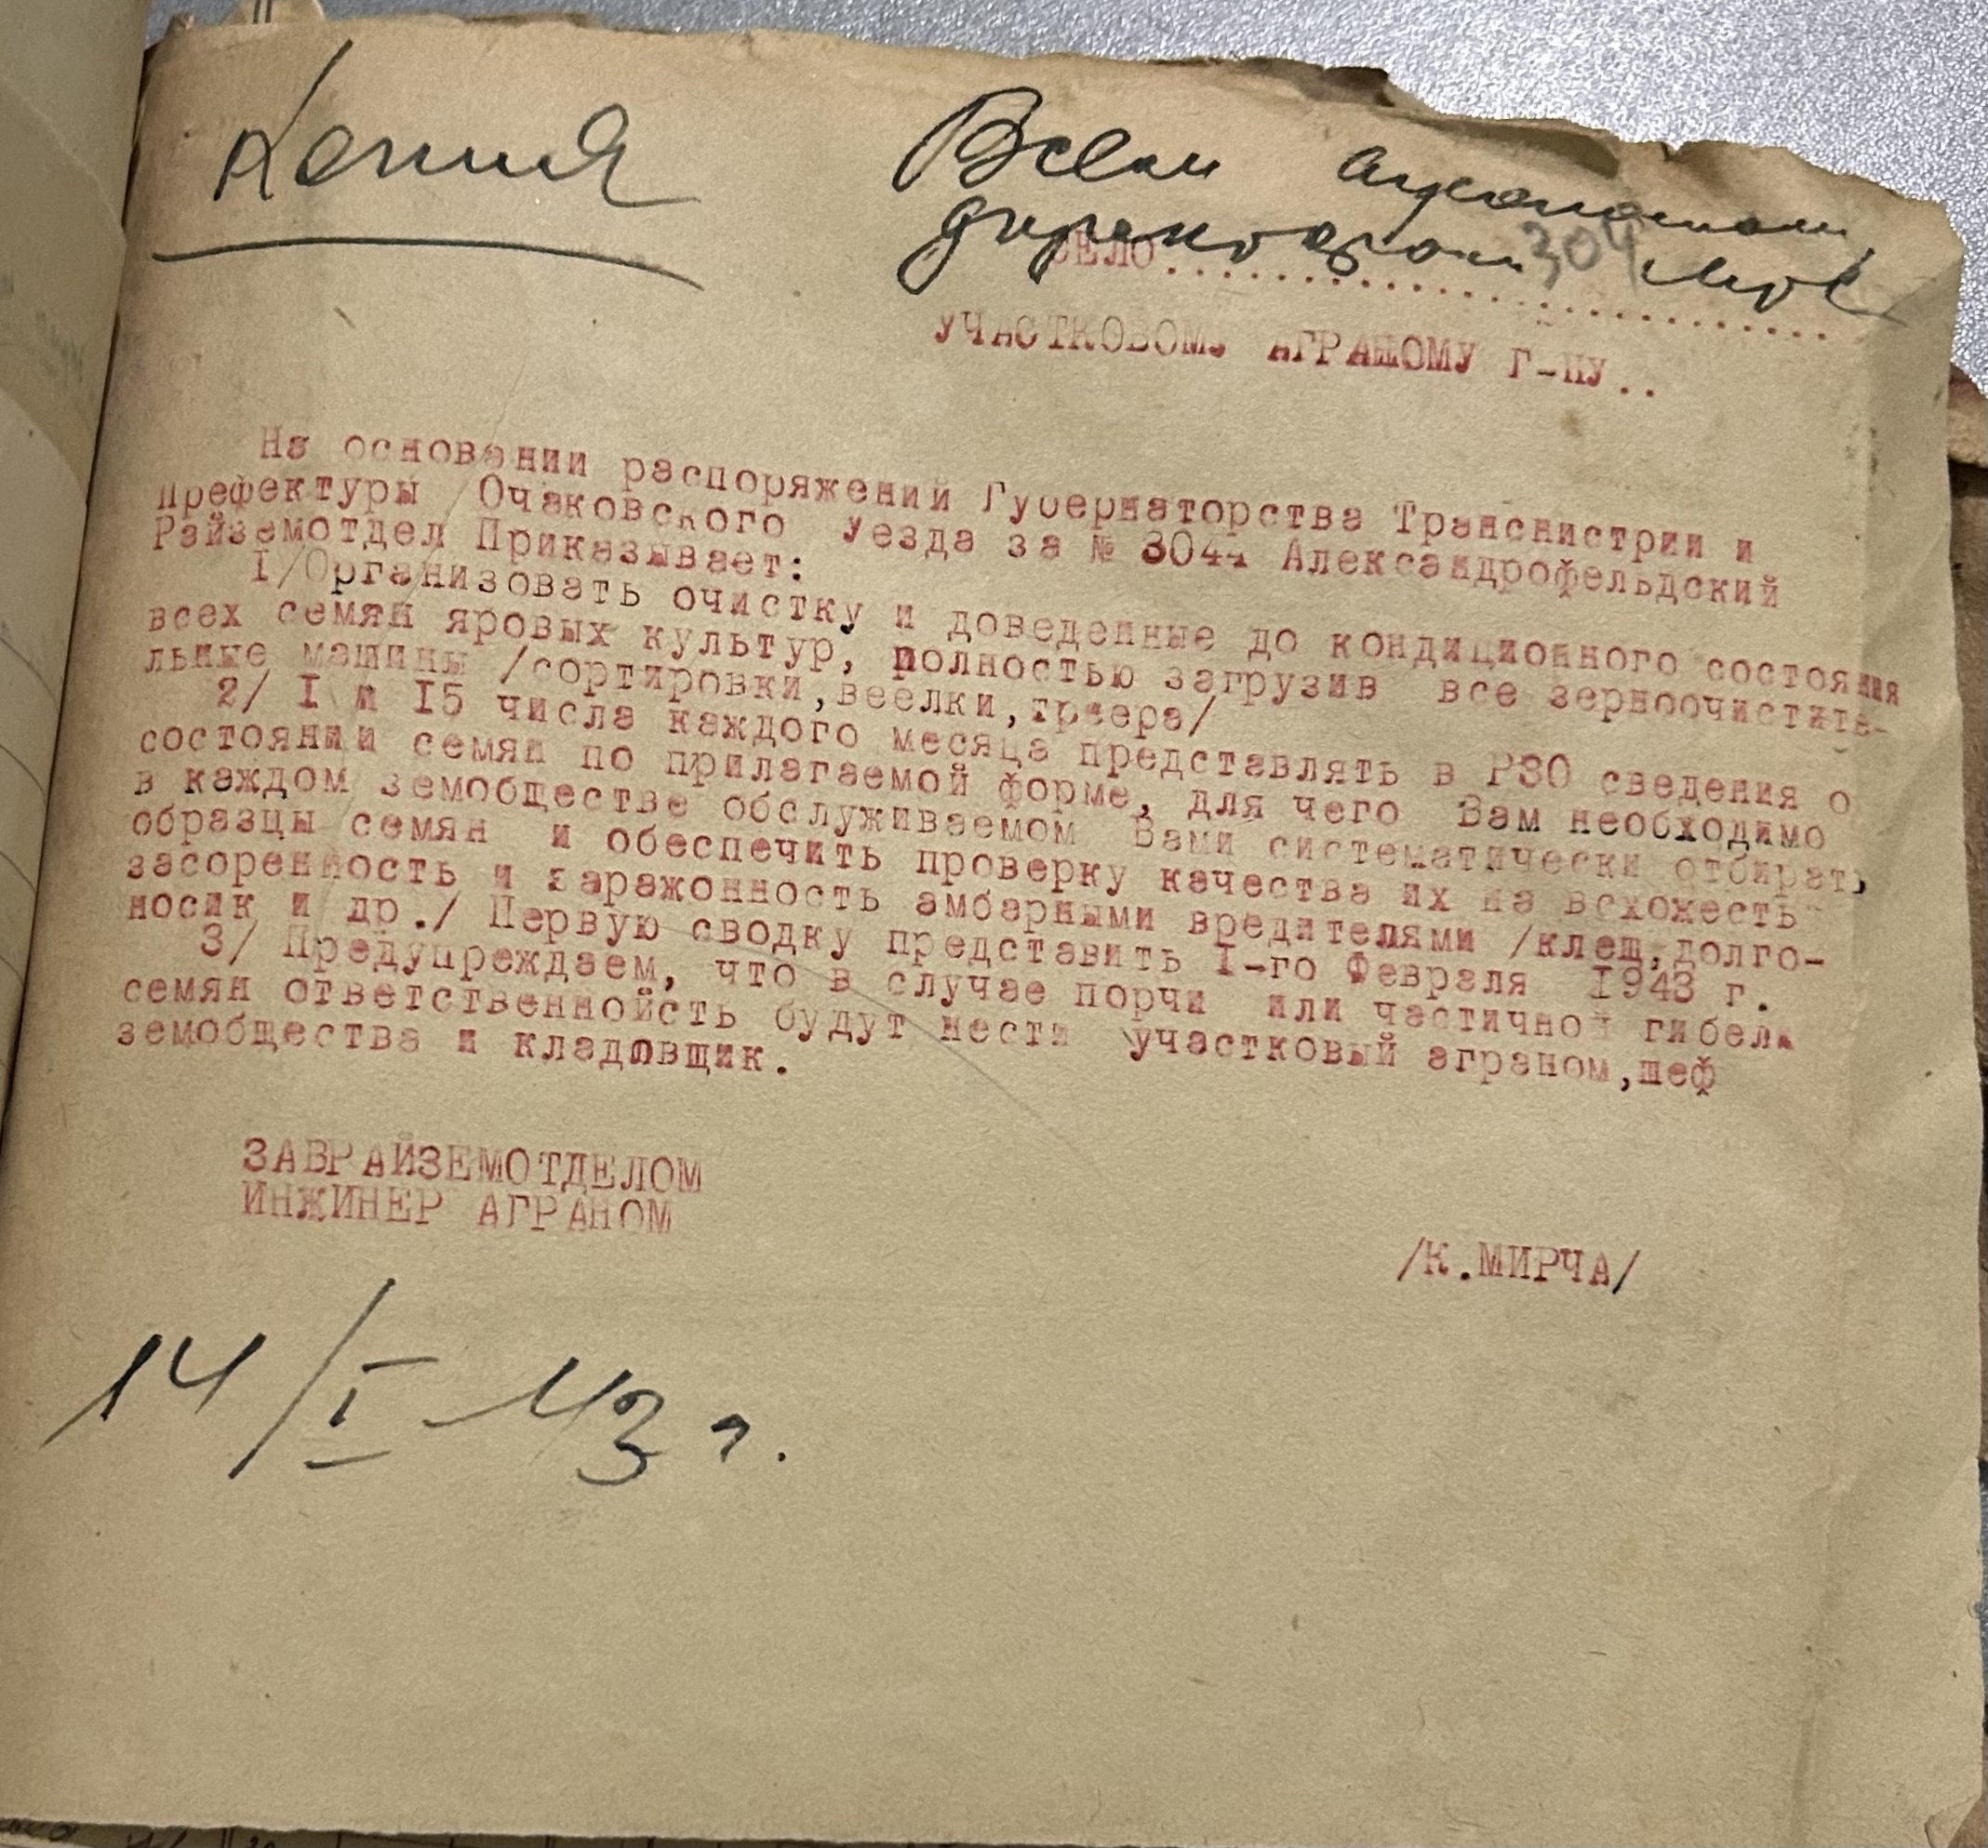 Копия
Всем агрономам,
директорам МТС
304
СЕЛО..............................
УЧАСТКОВОМУ АГРАНОМУ Г-НУ..
На основании распоряжений Губернаторства Транснистрии и
Префектуры Очаковского Уезда за № 3044 Александрофельдский
Райземотдел Приказывает:
I/Организовать очистку и доведенные до кондиционного состояния
всех семян яровых культур, полностью загрузив все зерноочистите-
льные машины /сортировки,веелки,триера/
2/ I и I5 числа каждого месяца представлять в РЗО сведения о
состоянии семян по прилагаемой форме, для чего Вам необходимо
в каждом земобществе обслуживаемом Вами систематически отбирать
образцы семян и обеспечить проверку качества их на всхожесть
засоренность и заражонность амбарными вредителями /клещ,долго-
носик и др./ Первую сводку представить I-го Февраля I943 г.
3/ Предупреждаем, что в случае порчи или частичной гибели
семян ответственнойсть будут нести участковый аграном,шеф
земобщества и кладовщик.
ЗАВРАЙЗЕМОТДЕЛОМ
ИНЖИНЕР АГРАНОМ
/К.МИРЧА/
14/I-43 г.